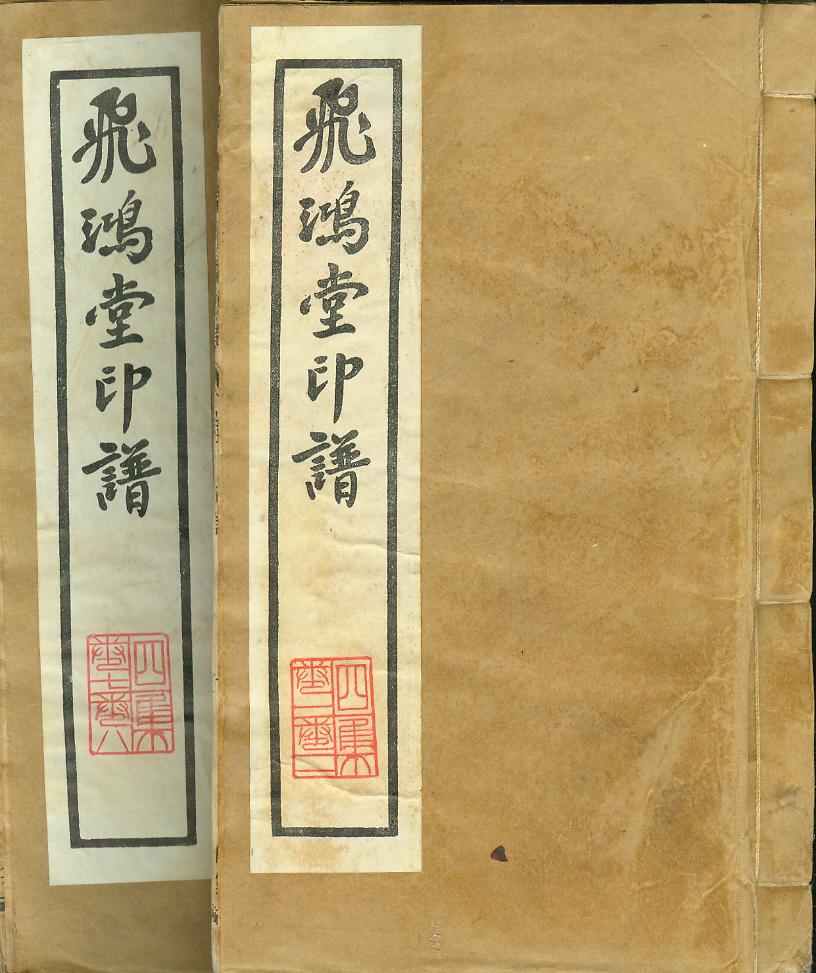 飛鴻堂印譜
四集
卷一卷二
飛鴻堂印譜
四集
卷七卷八